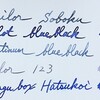 ilor Soboku
lot blueblack
tinum blueblack
ilor 123
gubox Hatsukoi